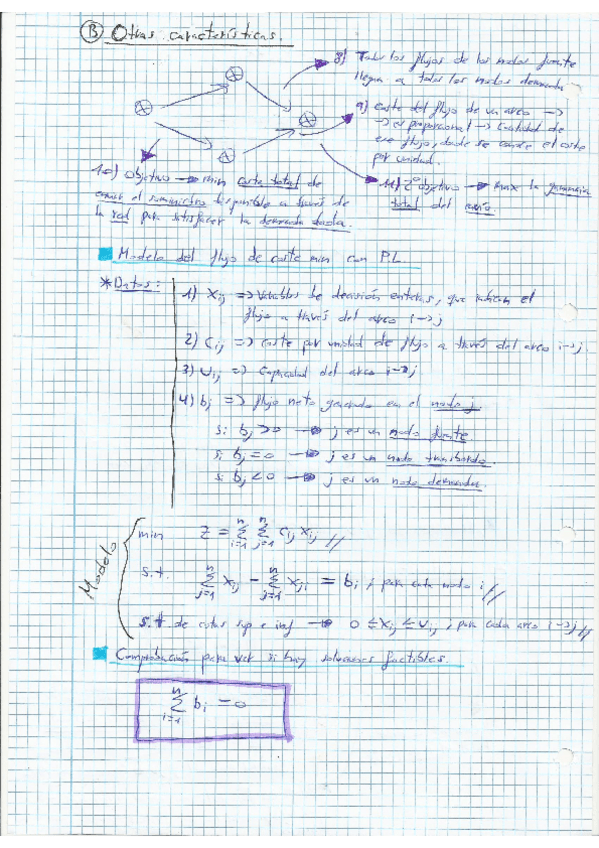 Ⓑ Otras características.
8) Todos los flujos de los nodos fuente
llegan a todos los nodos demanda
9) coste del flujo de un arco -->
-> es proporcional -> cantidad de
ese flujo, donde se conoce el coste
por unidad.
10) Objetivo -> min coste total de
enviar el suministro disponible a través de
la red para satisfacer la demanda dada.
11) 2º objetivo -> max la ganancia
total del envío.
Modelo del flujo de coste min con P.L
* Datos:
1) Xij => Variables de decisión enteras, que indican el
flujo a través del arco i->j
2) Cij => coste por unidad de flujo a través del arco i->j.
3) Uij => Capacidad del arco i->j
4) bj => flujo neto generado en el nodo j
si bj > 0 -> j es un nodo fuente
si bj = 0 -> j es un nodo transbordo.
si bj < 0 -> j es un nodo demanda.
Modelo
min Z = Σ(i=1..n) Σ(j=1..n) Cij Xij //
s.t. Σ(j=1..n) Xij − Σ(j=1..n) Xji = bi ; para cada nodo i //
s.t de cotas sup e inf -> 0 ≤ Xij ≤ Uij ; para cada arco i->j //
Comprobación para ver si hay soluciones factibles.
Σ(i=1..n) bi = 0